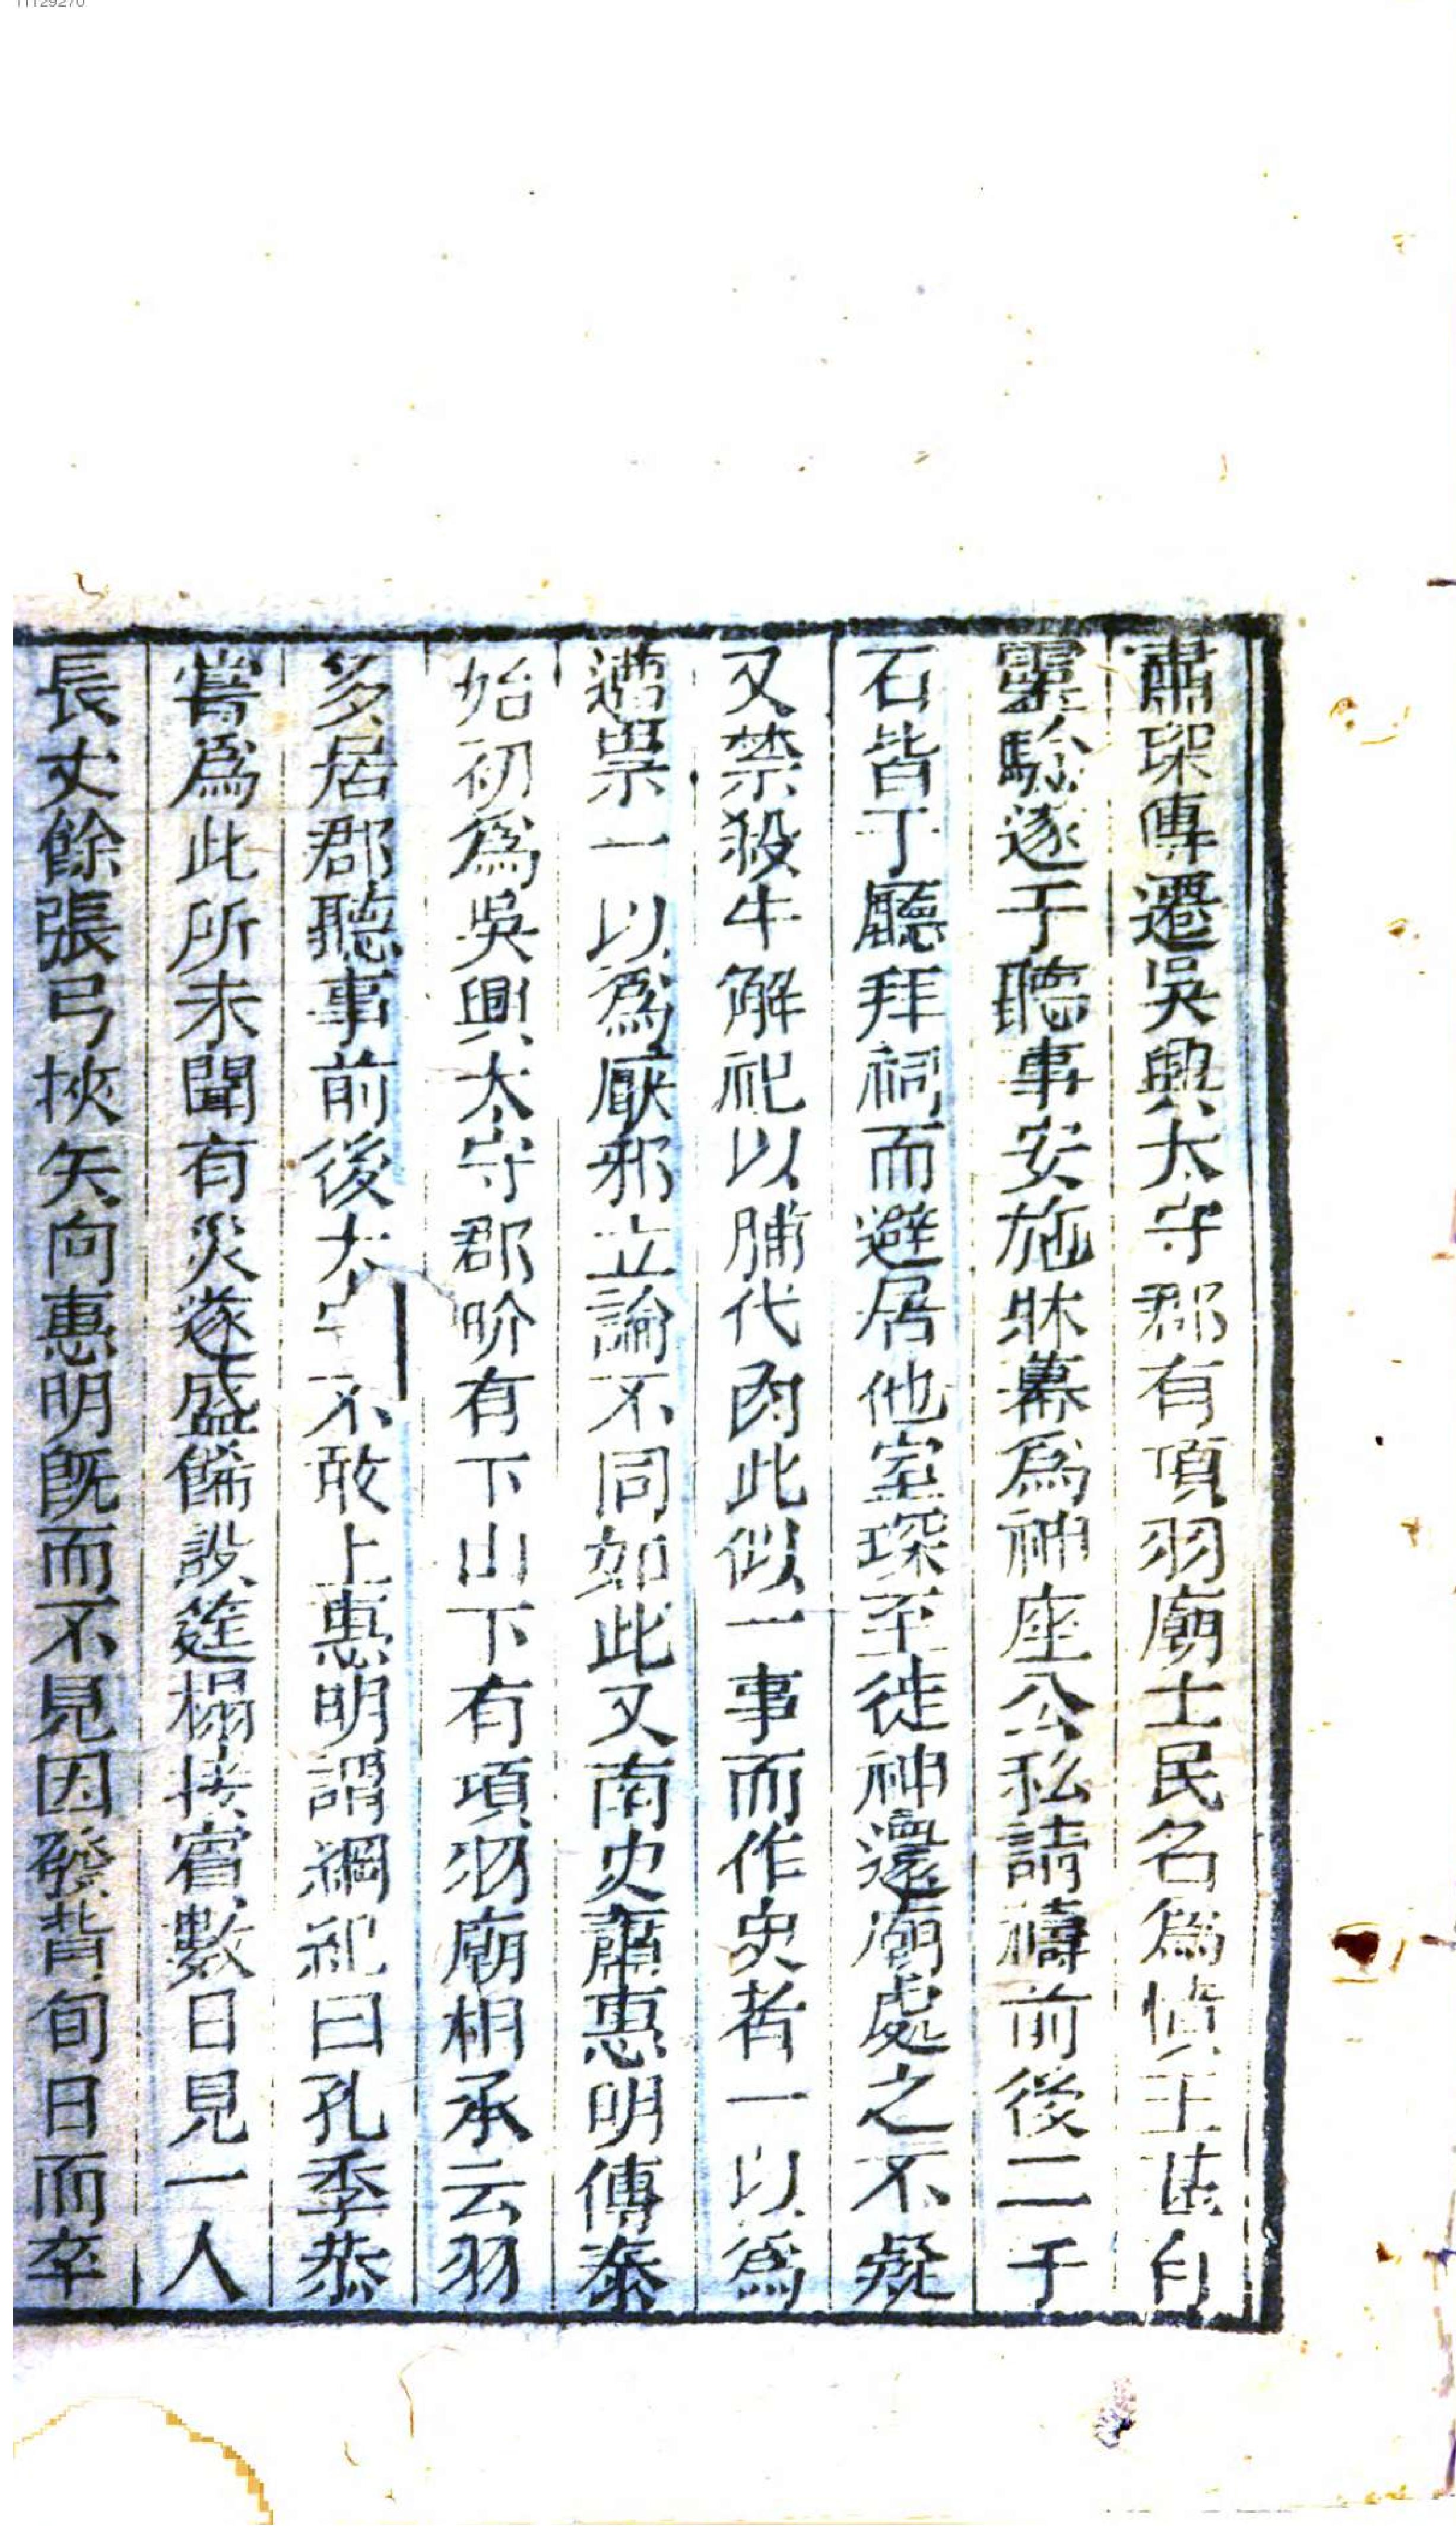 11129270
蕭琛傳遷吳興太守郡有項羽廟士民名為憤王甚有
靈驗遂于聽事安施牀幕爲神座公私請禱前後二千
石皆于廳拜祠而避居他室琛至徙神還廟處之不疑
又禁殺牛解祀以脯代肉此似一事而作史者一以爲
遭祟一以爲厭邪立論不同如此又南史蕭惠明傳泰
始初爲吳興太守郡界有下山下有項羽廟相承云羽
多居郡聽事前後太守不敢上惠明謂綱紀曰孔季恭
嘗爲此所未聞有災遂盛俻設筵榻接賔數日見一人
長丈餘張弓挾矢向惠明旣而不見因發背旬日而卒